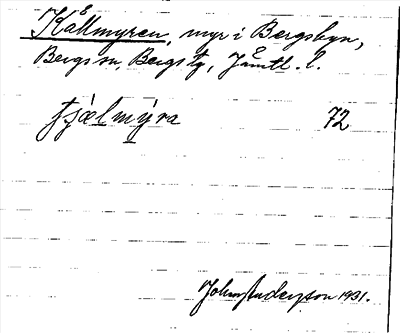 Kälmyren, myr i Bergsbyn,
Bergs sn, Bergs tg, Jämtl. l.
fjælmýra 72
John Anderson 1931.